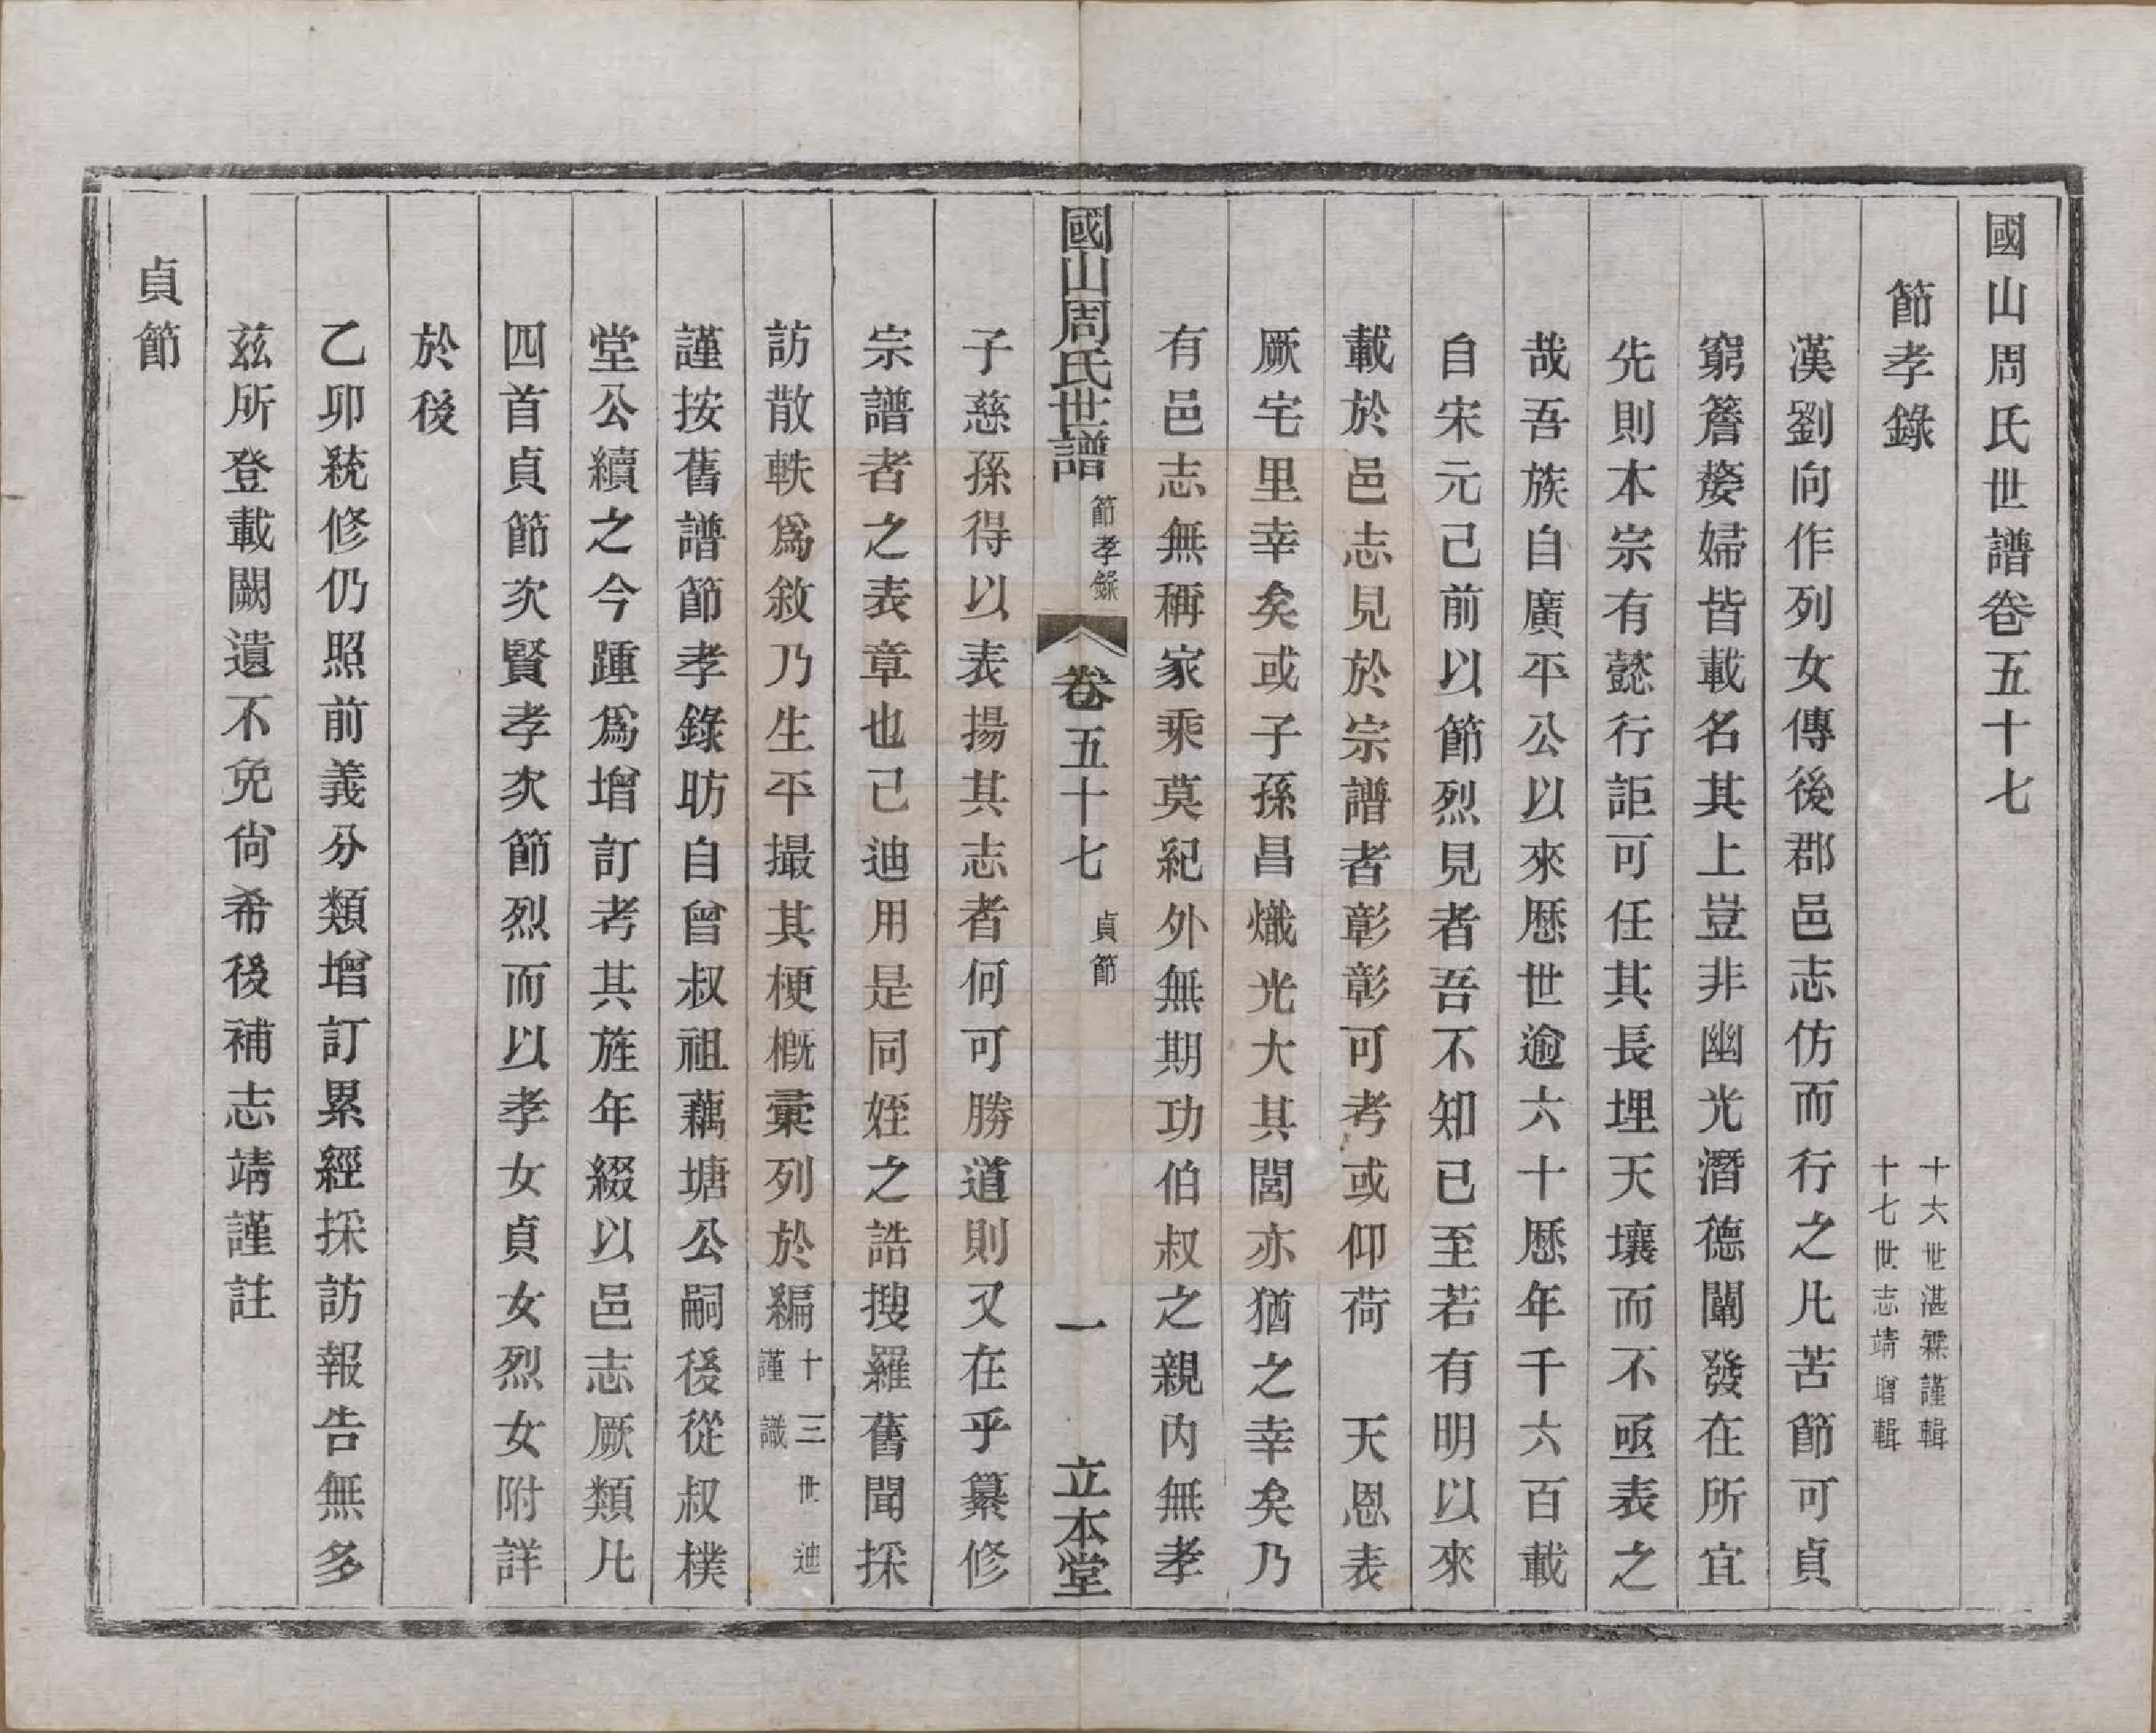 國山周氏世譜卷五十七
節孝錄
十六世湛霖謹輯
十七世志靖增輯
漢劉向作列女傳後郡邑志仿而行之凡苦節可貞
窮簷嫠婦皆載名其上豈非幽光潛德闡發在所宜
先則本宗有懿行詎可任其長埋天壤而不亟表之
哉吾族自廣平公以來歷世逾六十歷年千六百載
自宋元己前以節烈見者吾不知已至若有明以來
載於邑志見於宗譜者彰彰可考或仰荷　天恩表
厥宅里幸矣或子孫昌熾光大其閭亦猶之幸矣乃
有邑志無稱家乘莫紀外無期功伯叔之親內無孝
國山周氏世譜　節孝錄　卷五十七　貞節　一　立本堂
子慈孫得以表揚其志者何可勝道則又在乎纂修
宗譜者之表章也己迪用是同姪之誥搜羅舊聞採
訪散軼爲敘乃生平撮其梗概彙列於編十三世迪謹識
謹按舊譜節孝錄昉自曾叔祖藕塘公嗣後從叔樸
堂公續之今踵爲增訂考其旌年綴以邑志厥類凡
四首貞節次賢孝次節烈而以孝女貞女烈女附詳
於後
乙卯統修仍照前義分類增訂累經採訪報告無多
茲所登載闕遺不免尙希後補志靖謹註
貞節